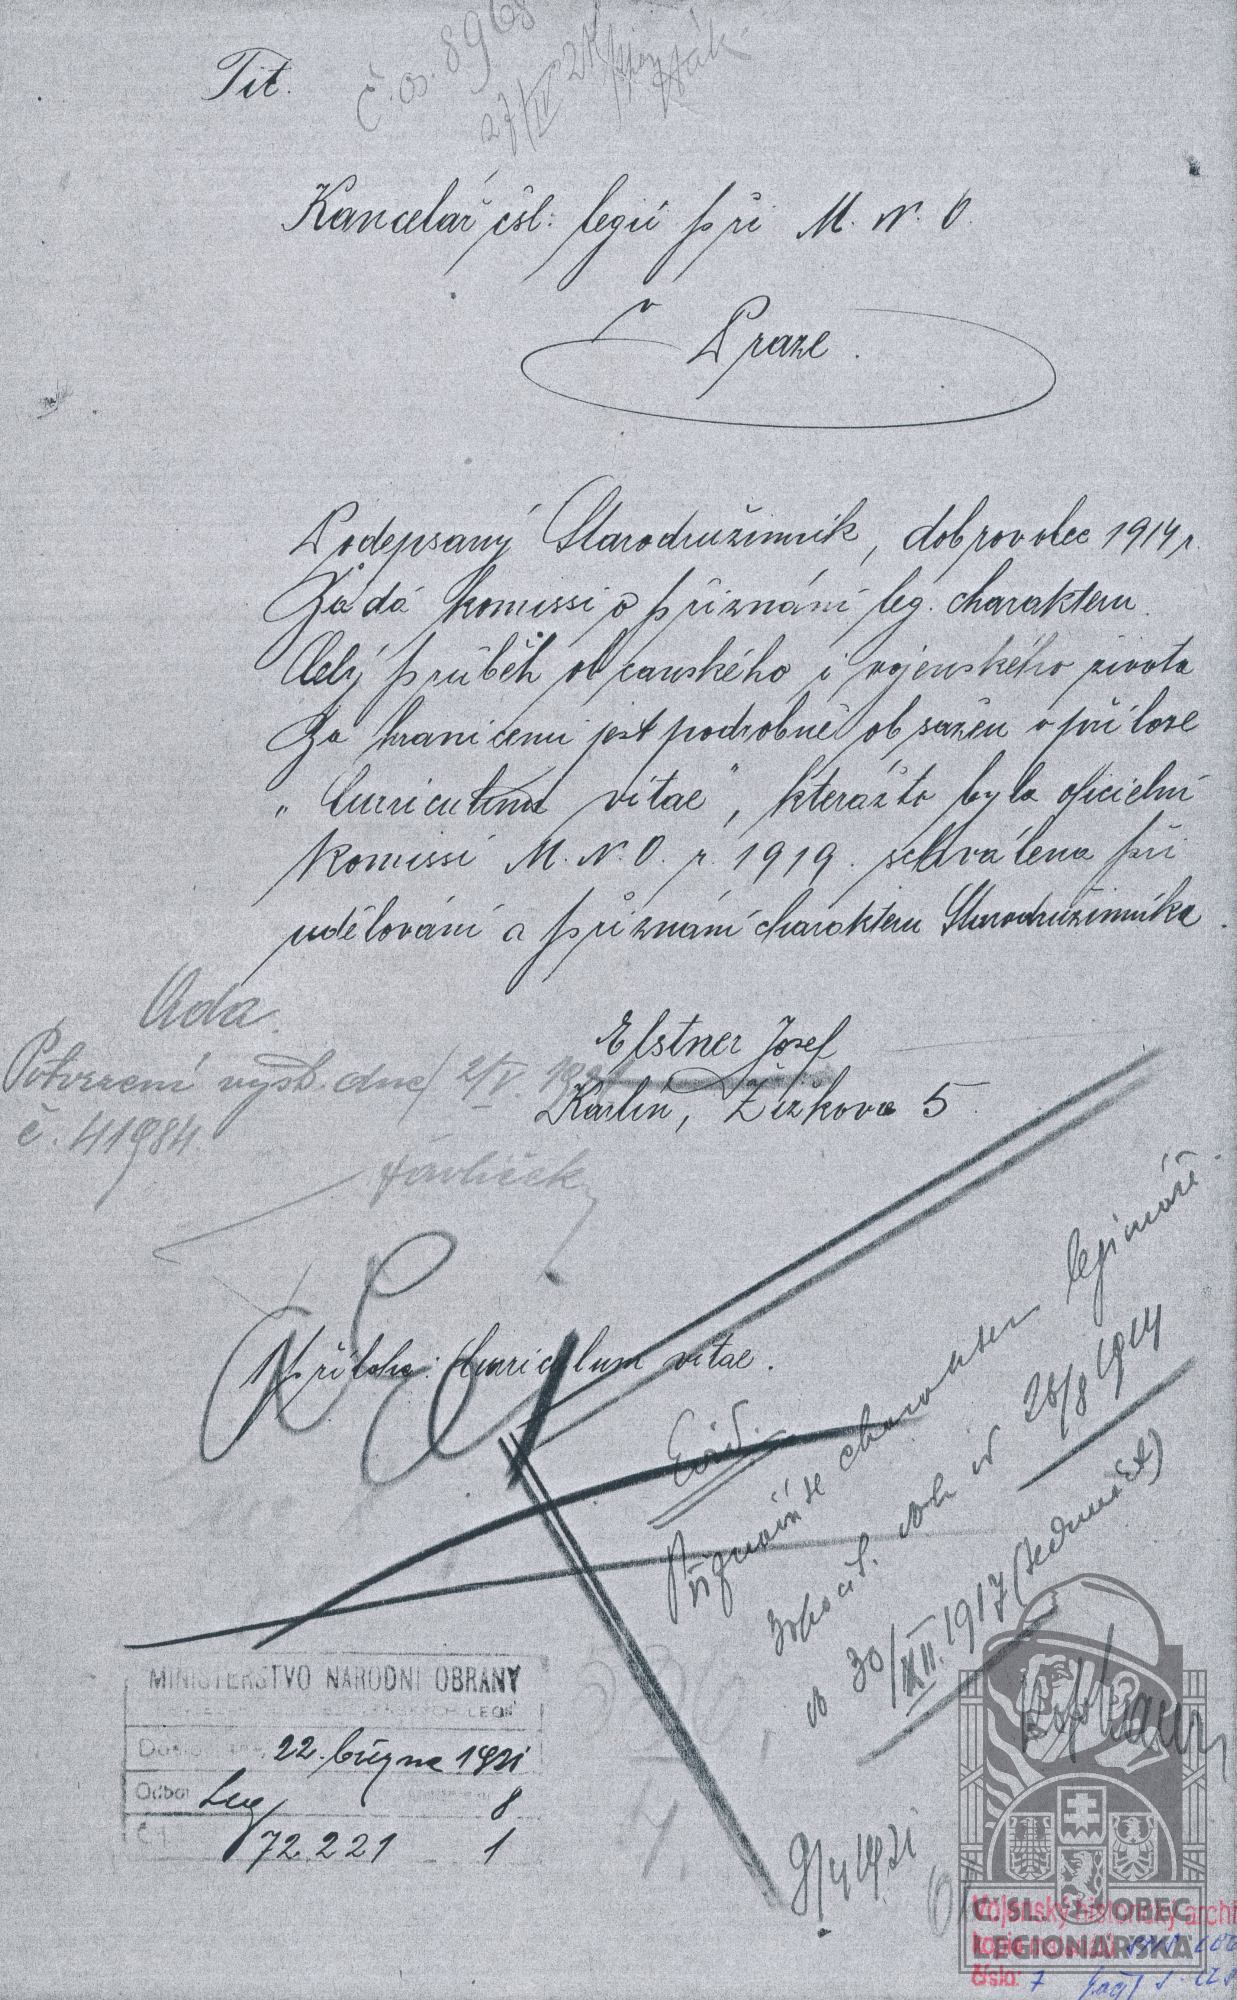 Tit.
č. os. 8968
27/IV 21
Kancelář čsl: legií při M. N. O.
v
Praze.
Podepsaný Starodružinník, dobrovolec 1914 r.
žádá komissi o přiznání leg. charakteru.
Celý průběh občanského i vojenského života
za hranicemi jest podrobně obsažen v příloze
„Curriculum vitae", kterážto byla oficielní
komissí M. N. O. r. 1919. schválena při
udělování a přiznání charakteru Starodružinníka.
Ada.
Potvrzení vyst. dne 2/V. 1921
č. 41984.
Havlíček
Elstner Josef
Karlín, Žižkova 5
1 příloha: Curriculum vitae.
Evid.
Přiznává se charakter legionáře.
zahranič. voh. od 26/8 1914
do 30/XII. 1917
9/4 1921
MINISTERSTVO NÁRODNÍ OBRANY
22. března 1921
Odbor Leg 8
Č.j. 72.221 1
Vojenský historický archiv
kopie
číslo: 7
ČSL. OBEC
LEGIONÁŘSKÁ